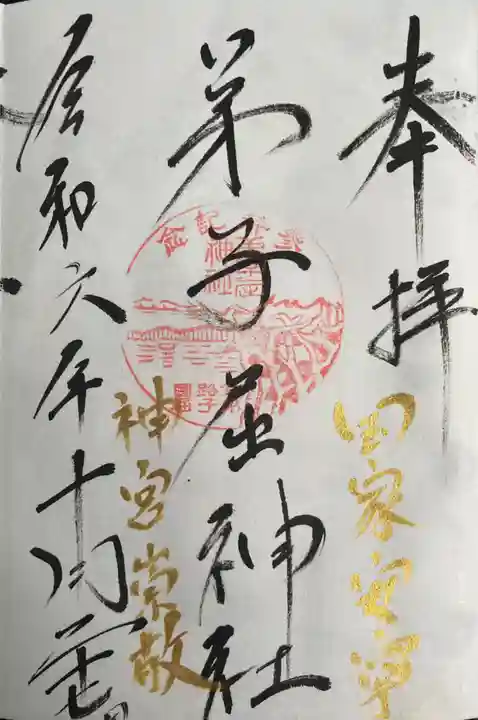 奉拝
国家安寧
弟子屈神社
神宮崇敬
令和六年十月
弟子屈神社
記念